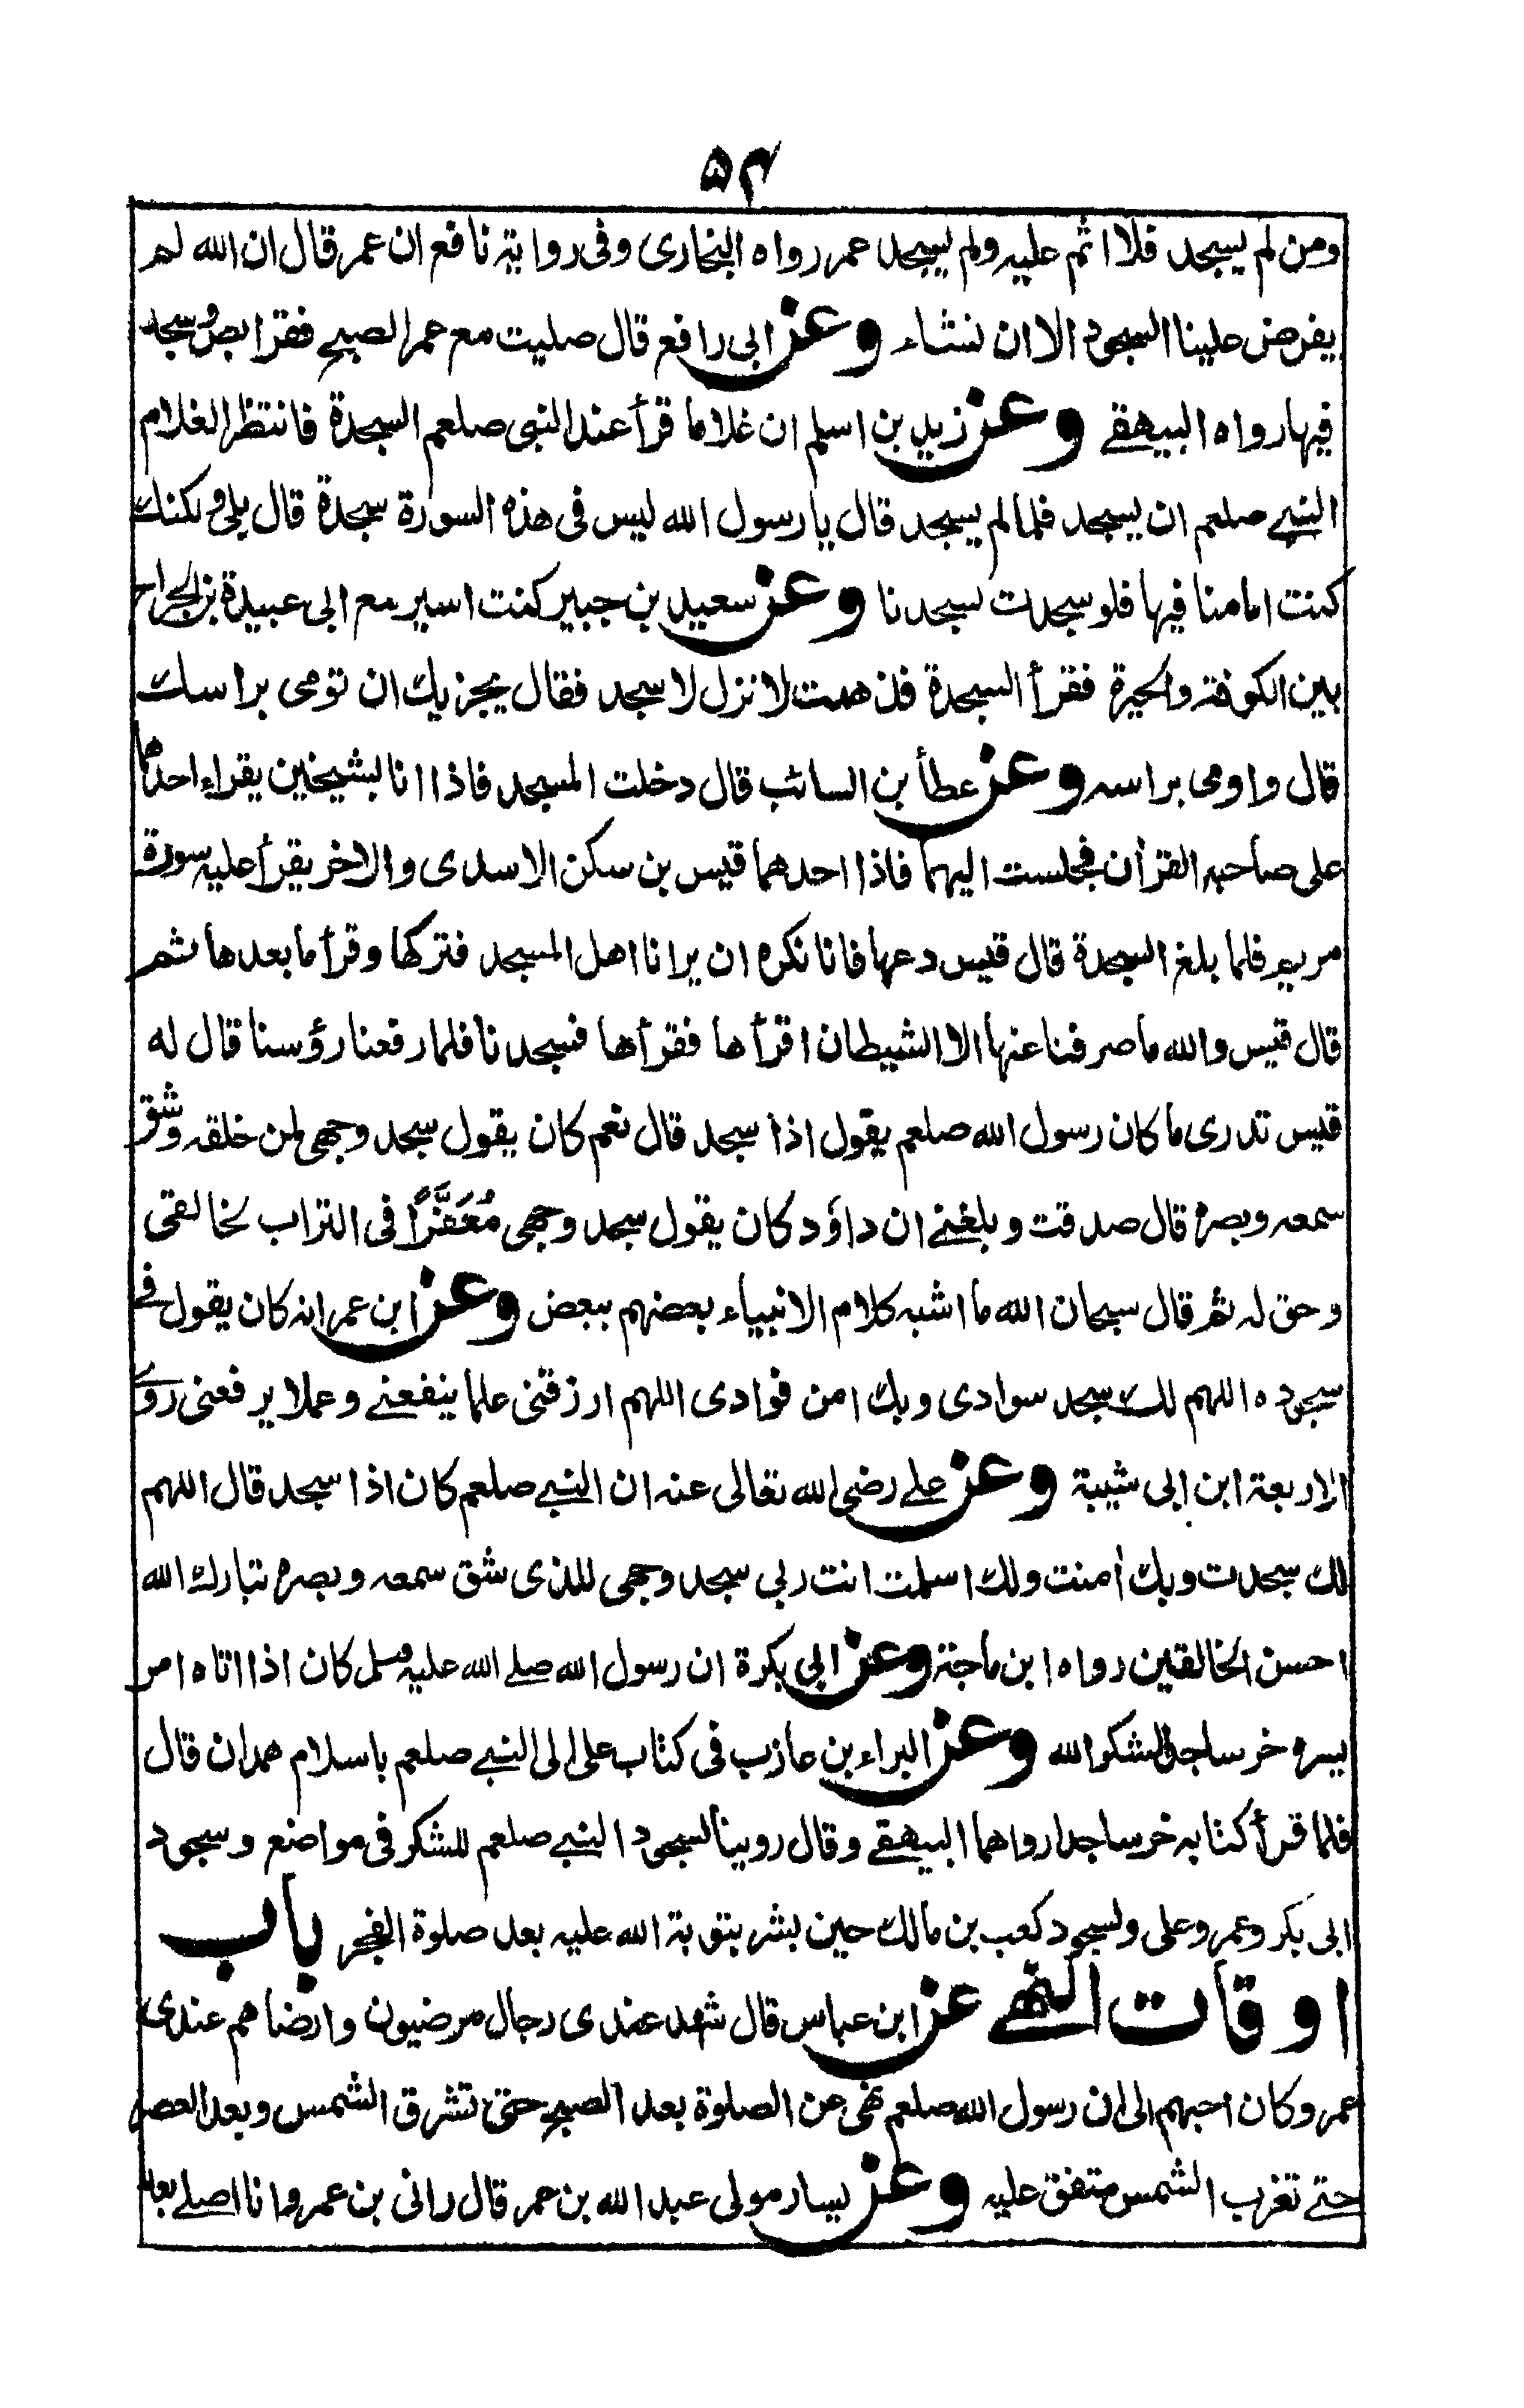 ۵۴
ومن لم يسجد فلا اثم عليه ولم يسجد عمر رواه البخارى وفى رواية نافع ان عمر قال ان الله لم
يفرض علينا السجود الا ان نشاء وعن ابى رافع قال صليت مع عمر الصبح فقرا بص وسجد
فيها رواه البيهقے وعن زيد بن اسلم ان غلاما قرأ عند النبى صلعم السجدة فانتظر الغلام
النبے صلعم ان يسجد فلما لم يسجد قال يا رسول الله ليس فى هذه السورة سجدة قال بلى ولكنك
كنت امامنا فيها فلو سجدت لسجدنا وعن سعيد بن جبير كنت اسير مع ابى عبيدة بن الجراح
بين الكوفة والحيرة فقرأ السجدة فذهبت لانزل لاسجد فقال يجزيك ان تومى براسك
قال واومى براسه وعن عطأ بن السائب قال دخلت المسجد فاذا انا بشيخين يقراء احدهما
على صاحبه القرأن فجلست اليهما فاذا احدهما قيس بن سكن الاسدى والاخر يقرأ عليه سورة
مريم فلما بلغ السجدة قال قيس دعها فانا نكره ان يرانا اهل المسجد فتركها وقرأ ما بعدها ثم
قال قيس والله ما صرفنا عنها الا الشيطان اقرأها فقرأها فسجدنا فلما رفعنا رؤسنا قال له
قيس تدرى ما كان رسول الله صلعم يقول اذا سجد قال نعم كان يقول سجد وجهى لمن خلقه وشق
سمعه وبصره قال صدقت وبلغنے ان داؤد كان يقول سجد وجهى مُعَفَّرًا فى التراب لخالقى
وحق له ثم قال سبحان الله ما اشبه كلام الانبياء بعضهم ببعض وعن ابن عمر انه كان يقول فے
سجوده اللهم لك سجد سوادى وبك امن فوادى اللهم ارزقنى علما ينفعنے وعملا يرفعنى روے
الاربعة ابن ابى شيبة وعن علے رضى الله تعالى عنه ان النبے صلعم كان اذا سجد قال اللهم
لك سجدت وبك أمنت ولك اسلمت انت ربى سجد وجهى للذى شق سمعه وبصره تبارك الله
احسن الخالقين رواه ابن ماجة وعن ابى بكرة ان رسول الله صلے الله عليه وسلم كان اذا اتاه امر
يسره خر ساجدا شكرا لله وعن البراء بن عازب فى كتاب على الى النبے صلعم باسلام همدان قال
فلما قرأ كتابه خر ساجدا رواهما البيهقے وقال روينا لسجود النبے صلعم للشكر فى مواضع وسجود
ابى بكر وعمر وعلى ولسجود كعب بن مالك حين بشر بتوبة الله عليه بعد صلوة الفجر باب
اوقات النهے عن ابن عباس قال شهد عندى رجال مرضيون وارضاهم عندى
عمر وكان احبهم الى ان رسول الله صلعم نهى عن الصلوة بعد الصبح حتى تشرق الشمس وبعد العصر
حتے تغرب الشمس متفق عليه وعن يسار مولى عبد الله بن عمر قال رانى بن عمر وانا اصلے بعد